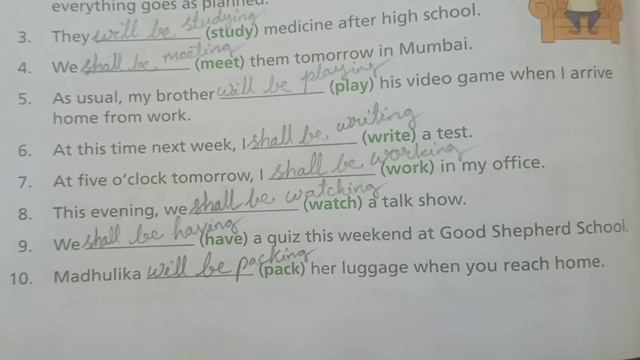 everything goes as planned.
3. They will be studying (study) medicine after high school.
4. We shall be meeting (meet) them tomorrow in Mumbai.
5. As usual, my brother will be playing (play) his video game when I arrive
home from work.
6. At this time next week, I shall be writing (write) a test.
7. At five o'clock tomorrow, I shall be working (work) in my office.
8. This evening, we shall be watching (watch) a talk show.
9. We shall be having (have) a quiz this weekend at Good Shepherd School.
10. Madhulika will be packing (pack) her luggage when you reach home.